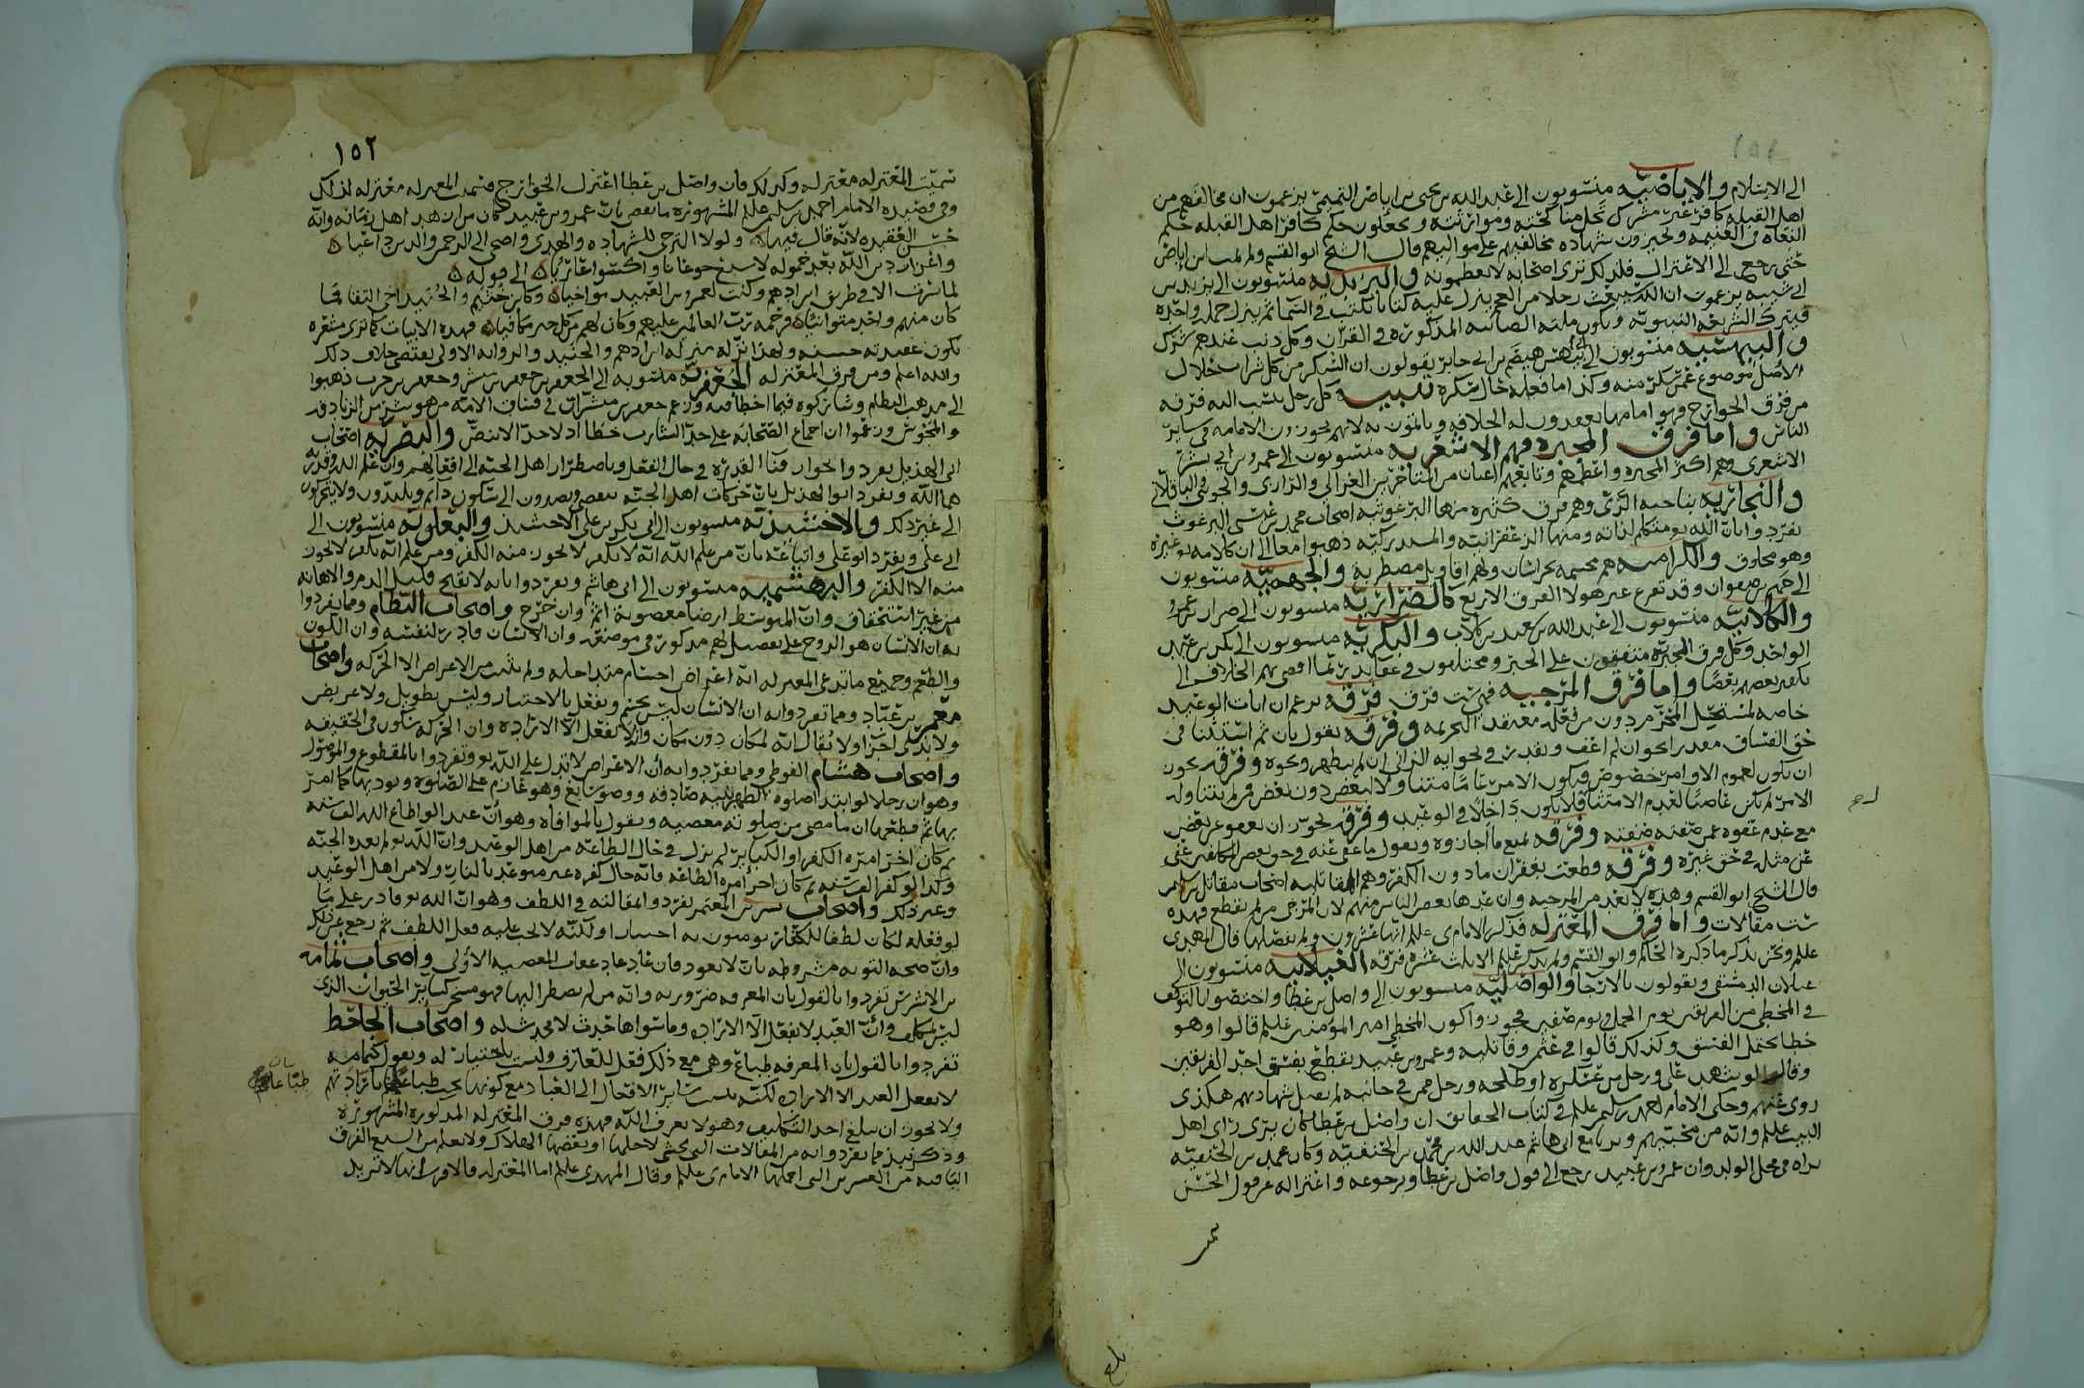 الى الاسلام والاباضيه منسوبون الى عبد الله بن يحيى بن اباض التميمي يزعمون ان مخالفهم من
اهل القبله كافر غير مشرك تحل مناكحته وموارثته ويجعلون حكم كافر اهل القبله حكم
البغاة في الغنيمه ويجيزون شهاده مخالفيهم على مواليهم قال الشيخ ابو القسم ولم يمت ابن اباض
حتى رجع الى الاعتزال فلذلك ترى اصحابه لا يعظمونه واليزيديه منسوبون الى يزيد بن
ابي شيبه يزعمون ان الله سيبعث رجلا من العجم ينزل عليه كتابا يكتب في السما ثم ينزل جمله واحده
فيترك الشريعه النبويه ويكون ملته الصابيه المذكوره في القران وكل ذنب عندهم شرك
والبيهسيه منسوبون الى ابي بيهس هيصم بن ابي جابر يقولون ان السكر من كل شراب حلال
الاصل موضوع عمن سكر منه وكذا ما فعله حال سكره تنبيه وكل رجل ينسب اليه فرقه
من فرق الخوارج فهو امامها يعقدون له الخلافه وياتمون به لانهم يجوزون الامامه في ساير
الناس واما فرق المجبره فهم الاشعريه منسوبون الى عمرو بن ابي بشر
الاشعري وهم اكثر المجبره واعظمهم وتابعهم اعيان من المتاخرين الغزالي والرازي والجويني والباقلاني
والنجاريه بناحيه الري وهم فرق كثيره منها البرغوثيه اصحاب محمد بن عيسى البرغوث
تفرد وابان الله متكلم لذاته ومنها الزعفرانيه والمستدركيه ذهبوا معا الى ان كلامه غيره
وهو مخلوق والكراميه هم مجسمه بخراسان ولهم اقاويل مضطربه والجهميه منسوبون
الى جهم بن صفوان وقد تفرع عن هولا الفرق الاربع كالضراريه منسوبون الى ضرار بن عمرو
والكلابيه منسوبون الى عبد الله بن سعيد بن كلاب والبكريه منسوبون الى بكر بن عبد
الواحد وكل فرق المجبره متفقون على الجبر ومختلفون في عقايد ربما افضى بهم الخلاف الى
تكفير بعضهم بعضا واما فرق المرجيه فهم ست فرق فرقه تزعم ان ايات الوعيد
خاصه لمستحل المحرم دون من فعله معتقد التحريمه وفرقه تقول بان ثم استثنا في
حق الفساق وفرقه تجوز
ان يكون لعموم الاوامر خصوص فيكون الامر عاما متناولا لبعض دون بعض فمن لم يتناوله
الامر لم يكن عاصيا لعدم الامتثال فلا يكون داخلا في الوعيد وفرقه تجوز ان يعفو عن بعض
مع عدم عفوه عمن صفته صفته وفرقه تمنع ما اجازوه ويقول ما عفى عنه في حق بعض المكلفين عفى
عن مثله في حق غيره وفرقه قطعت بغفران ما دون الكفر وهم المقاتليه اصحاب مقاتل بن سليمن
قال الشيخ ابو القسم وهذه لا تعد من المرجيه وان عدها بعض الناس منهم لان المرجي من لم يقطع فهذه
ست مقالات واما فرق المعتزله فذكر الامام ي علم انها عشرون ولم يفصلها قال المهدي
علم ونحن نذكر ما ذكره الحاكم وابو القسم ولم يذكر علم الا ثلث عشره فرقه الغيلانيه منسوبون الى
غيلان الدمشقي ويقولون بالارجا والواصليه منسوبون الى واصل بن عطا واختصوا بالتوقف
في المخطي من الفريقين يوم الجمل ويوم صفين فجوزوا كون المخطي امير المؤمنين علم قالوا وهو
خطا يحتمل الفسق وكذلك قالوا في عثمن وقاتليه وعمرو بن عبيد يقطع بفسق احد الفريقين
وقال لو شهد علي ورجل من عسكره او طلحه ورجل ممن في جانبه لم تقبل شهادتهم هكذى
روي عنهم وحكى الامام احمد بن سليم علم في كتاب الحقايق ان واصل بن عطا كان يرى راي اهل
البيت علم وانه من محبيهم وتابع ابي هاشم عبد الله بن محمد بن الحنفيه وكان محمد بن الحنفيه
يراه في محل الولد وان عمرو بن عبيد رجع الى قول واصل بن عطا ورجوعه واعتزاله عن قول الحسن
١٥٢
سميت المعتزله معتزله وكذلك فان واصل بن عطا اعتزل الخوارج فسميت المعتزله معتزله لذلك
وفي قصيده الامام احمد بن سليم علم المشهوره ما يقضي بان عمرو بن عبيد كان من ازهد اهل زمانه وانه
حسن العقيده لانه قال فيها ولولا الترجي للشهاده والهدى
الى قوله
وكنت لعمرو بن العبيد مواخيا
كان منهم واحد متوانيا فرحمه رب العالمين عليهم وكان لهم من كل خير مكافيا فهذه الابيات كما ترى مشعره
بكون عقيدته حسنه ولهذا نزله منزله ابن ادهم والجنيد والروايه الاولى يقتضي خلاف ذلك
والله اعلم ومن فرق المعتزله الجعفريه منسوبه الى الجعفرين جعفر بن مبشر وجعفر بن حرب ذهبوا
الى مذهب النظام وشاركوه فيما اخطا فيه وزعم جعفر بن مبشر ان في فساق الامه من هو شر من الزنادقه
والمجوس وزعموا ان اجماع الصحابه على حد الشارب خطا اذ لا حد الا بنص والنصريه اصحاب
ابي الهذيل تفردوا بجواز فنا القدره في حال الفعل وباضطرار اهل الجنه الى افعالهم وان علم الله وقدرته
هما الله وتفرد ابو الهذيل بان حركات اهل الجنه تنقضي ويصيرون الى سكون دايم ويلتذون ولا يتحركون
الى غير ذلك والاخشيذيه منسوبون الى ابي بكر بن علي الاخشيذ والبعلويه منسوبون الى
ابي علي وتفرد ابو علي واتباعه بان من علم الله انه لا يكفر لا يجوز منه الكفر ومن علم انه يكفر لا يجوز
منه الا الكفر والبهشميه منسوبون الى ابي هاشم وتفردوا بانه لا يقبح قليل الذم والاهانه
من غير استحقاق وان المتوسط ارضا مغصوبة اثم وان خرج واصحاب النظام ومما تفردوا
به ان الانسان هو الروح على تفصيل لهم مذكور في موضعه وان الانسان قادر لنفسه وان اللون
والطعم وجميع ما تدعي المعتزله انه اعراض اجسام متداخله ولم يثبت من الاعراض الا الحركه واصحاب
معمر بن عباد ومما تفردوا به ان الانسان ليس بجسم ويفعل بالاختيار وليس بطويل ولا عريض
ولا بذي اجزا ولا يقال انه لمكان دون مكان وانه لا يفعل الا الاراده وان الحركه سكون في الحقيقه
واصحاب هشام الفوطي ومما تفردوا به ان الاعراض لا تدل على الله وتفردوا بالمقطوع والموصول
وهو ان رجلا لو ابتدا صلوة الظهر بنيه صادقه ووضو سابغ وهو عازم على الصلوه ويوديها كما امر
بها ثم قطعها ان ما مضى من صلوته معصيه ويقول بالموافاه وهو ان عبدا لو اطاع الله الف سنه
ثم كان اخر امره الكفر او الكباير لم يزل في حال الطاعه من اهل الوعيد وان الله لم يعده الجنه
وكذا لو كفر الف سنه ثم كان اخر امره الطاعه فانه حال كفره غير متوعد بالنار ولا من اهل الوعيد
وغير ذلك واصحاب بشر بن المعتمر تفردوا بمقالته في اللطف وهو ان الله قادر على ما
لو فعله لكان لطفا للكفار يومنون به اختيارا ولكنه لا يجب عليه فعل اللطف ثم رجع عن ذلك
وان صحه التوبه مشروطه بان لا يعود فان عاد عاد عقاب المعصيه الاولى واصحاب ثمامه
بن الاشرس تفردوا بالقول بان المعرفه ضروريه وانه من لم يضطر اليها فهو مسخر كساير الحيوان الذي
ليس بمكلف وان العبد لا يفعل الا الاراده وما سواها حدث لا محدث له واصحاب الجاحظ
تفردوا بالقول بان المعرفه طباع وهي مع ذلك فعل للعارف وليست باختيار له ويقول كثمامه
لا يفعل العبد الا الاراده لكنه ينسب ساير الافعال الى العباد مع كونها تجب طباعا بارادتهم
ولا يجوز ان يبلغ احد التكليف وهو لا يعرف الله فهذه فرق المعتزله المذكوره المشهوره
وذكر نبذ مما تفردوا به من المقالات التي يخشى لاجلها او بعضها الهلاك ولا نعلم من السبع الفرق
الباقيه من العشرين التي اجملها الامام ي علم وقال المهدي علم اما المعتزله فالاقرب انها لا تزيد